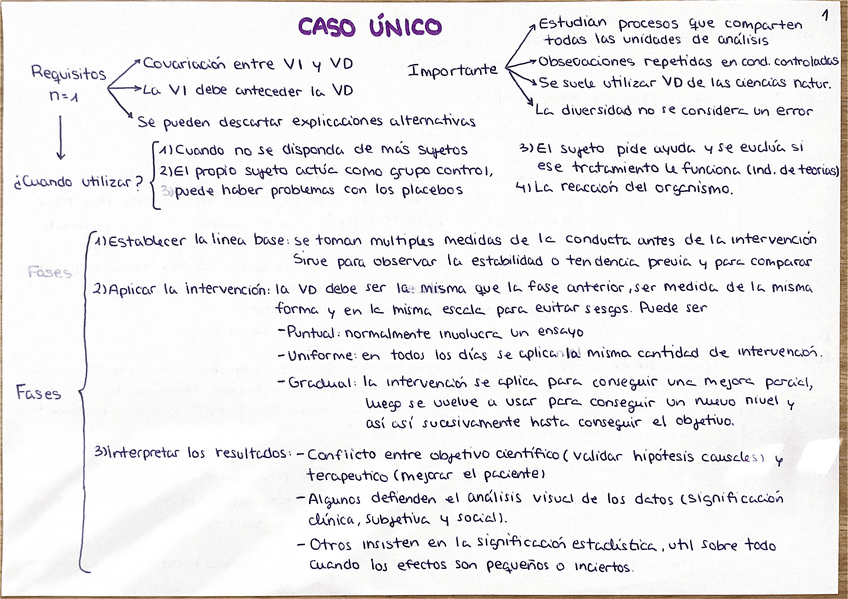 1
CASO ÚNICO
Requisitos
n=1
Covariación entre VI y VD
La VI debe anteceder la VD
Se pueden descartar explicaciones alternativas
Importante
Estudian procesos que comparten
todas las unidades de análisis
Observaciones repetidas en cond. controladas
Se suele utilizar VD de las ciencias natur.
La diversidad no se considera un error
¿Cuando utilizar?
1) Cuando no se disponda de más sujetos
2) El propio sujeto actúa como grupo control,
3) puede haber problemas con los placebos
3) El sujeto pide ayuda y se evalúa si
ese tratamiento le funciona (Ind. de teorías)
4) La reacción del organismo.
Fases
Fases
1) Establecer la linea base: se toman multiples medidas de la conducta antes de la intervención
Sirve para observar la estabilidad o tendencia previa y para comparar
2) Aplicar la intervención: la VD debe ser la misma que la fase anterior, ser medida de la misma
forma y en la misma escala para evitar sesgos. Puede ser
- Puntual: normalmente involucra un ensayo
- Uniforme: en todos los días se aplica la misma cantidad de intervención.
- Gradual: la intervención se aplica para conseguir una mejora parcial,
luego se vuelve a usar para conseguir un nuevo nivel y
así así sucasivamente hasta conseguir el objetivo.
3) Interpretar los resultados: - Conflicto entre objetivo científico (validar hipótesis causales) y
terapeutico (mejorar el paciente)
- Algunos defienden el análisis visual de los datos (significación
clínica, subjetiva y social).
- Otros insisten en la significación estadística, util sobre todo
cuando los efectos son pequeños o inciertos.